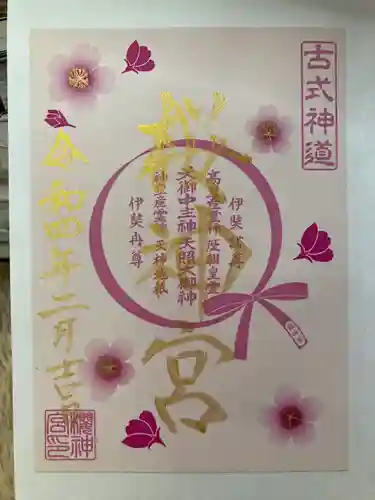 古式神道
櫻神宮
伊奘諾尊
高皇産霊神 歴朝皇霊
天御中主神 天照大御神
神皇産霊神 天神地祇
伊奘冉尊
令和四年二月吉日
櫻神宮印